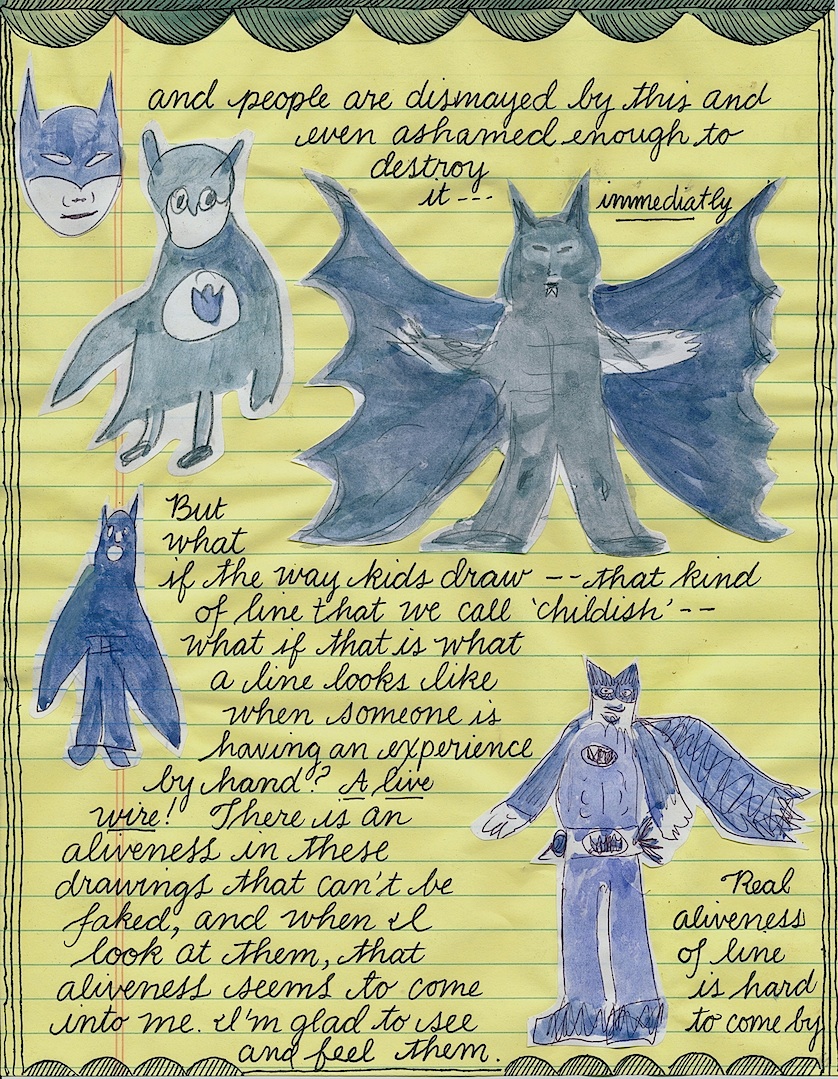 and people are dismayed by this and
even ashamed enough to
destroy
it --- immediatly
But
what
if the way kids draw -- that kind
of line that we call 'childish' --
what if that is what
a line looks like
when someone is
having an experience
by hand? A live
wire! There is an
aliveness in these
drawings that can't be
faked, and when I
look at them, that
aliveness seems to come
into me. I'm glad to see
and feel them.
Real
aliveness
of line
is hard
to come by